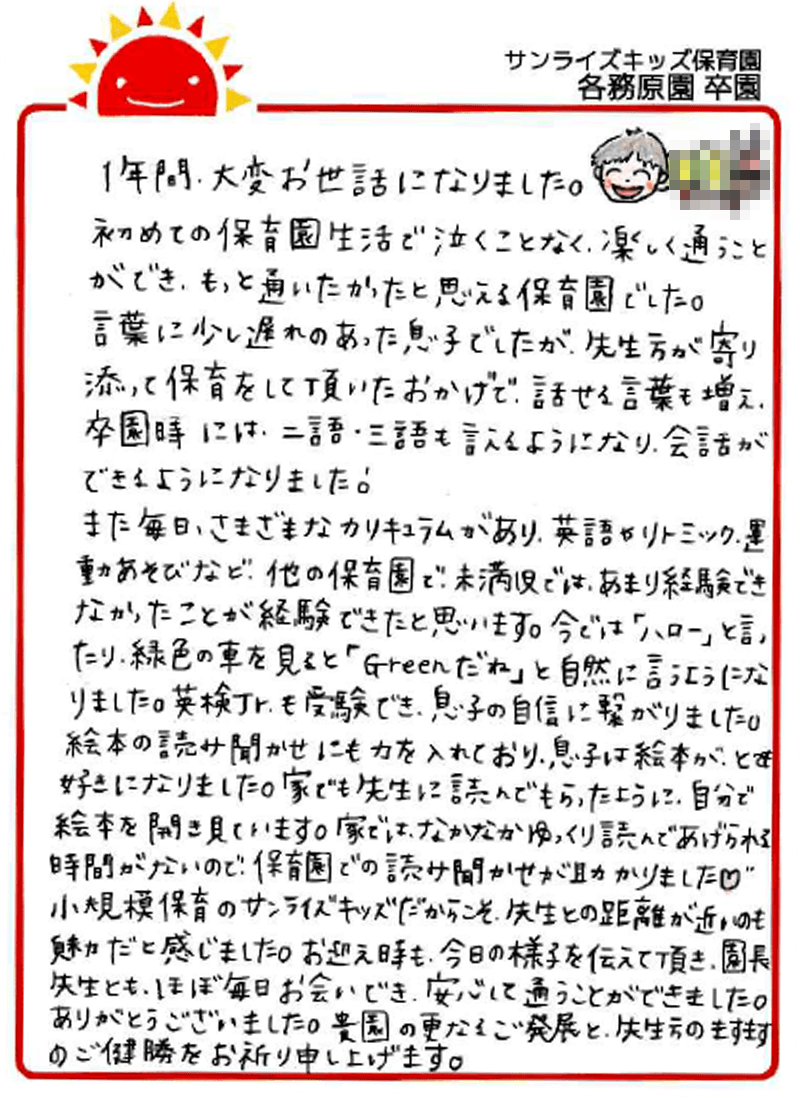 サンライズキッズ保育園
各務原園 卒園
1年間、大変お世話になりました。
初めての保育園生活で泣くことなく、楽しく通うこと
ができ、もっと通いたかったと思える保育園でした。
言葉に少し遅れのあった息子でしたが、先生方が寄り
添って保育をして頂いたおかげで、話せる言葉も増え、
卒園時には、二語・三語も言えるようになり、会話が
できるようになりました!
また毎日、さまざまなカリキュラムがあり、英語やリトミック、運
動あそびなど、他の保育園で、未満児では、あまり経験でき
なかったことが経験できたと思います。今では「ハロー」と言っ
たり、緑色の車を見ると「Greenだね」と自然に言うようにな
りました。英検Jr.も受験でき、息子の自信に繋がりました。
絵本の読み聞かせにも力を入れており、息子は絵本が、とても
好きになりました。家でも先生に読んでもらったように、自分で
絵本を開き見ています。家では、なかなかゆっくり読んであげられる
時間がないので、保育園での読み聞かせが助かりました♡
小規模保育のサンライズキッズだからこそ、先生との距離が近いのも
魅力だと感じました。お迎え時も、今日の様子を伝えて頂き、園長
先生とも、ほぼ毎日お会いでき、安心して通うことができました。
ありがとうございました。貴園の更なるご発展と、先生方のますます
のご健勝をお祈り申し上げます。